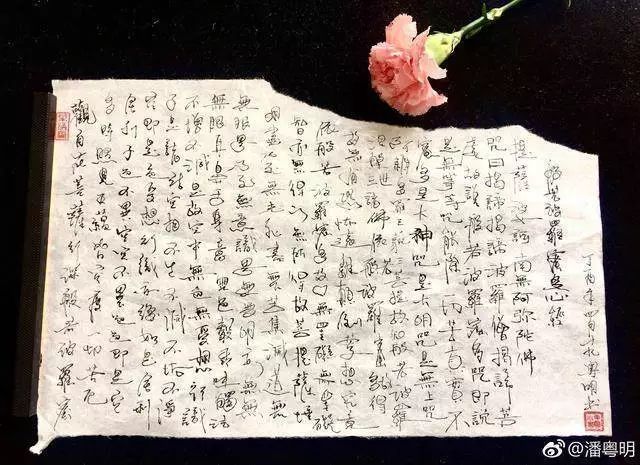 觀自在菩薩行深般若波羅蜜
多時照見五蘊皆空度一切苦厄
舍利子色不異空空不異色色即是空
空即是色受想行識亦復如是舍利
子是諸法空相不生不滅不垢不淨
不增不減是故空中無色無受想行識
無眼耳鼻舌身意無色聲香味觸法
無眼界乃至無意識界無無明亦無無
明盡乃至無老死盡無苦集滅道無
智亦無得以無所得故菩提薩埵
依般若波羅蜜多故心無罣礙無罣礙
故無有恐怖遠離顛倒夢想究竟
涅槃三世諸佛依般若波羅蜜多故得
阿耨多羅三藐三菩提故知般若波羅
蜜多是大神咒是大明咒是無上咒
是無等等咒能除一切苦真實不
虛故說般若波羅蜜多咒即說
咒曰揭諦揭諦波羅僧揭諦菩
提薩婆訶南無阿彌陀佛
般若波羅蜜多心經
丁酉年四月 粵明书
@潘粤明